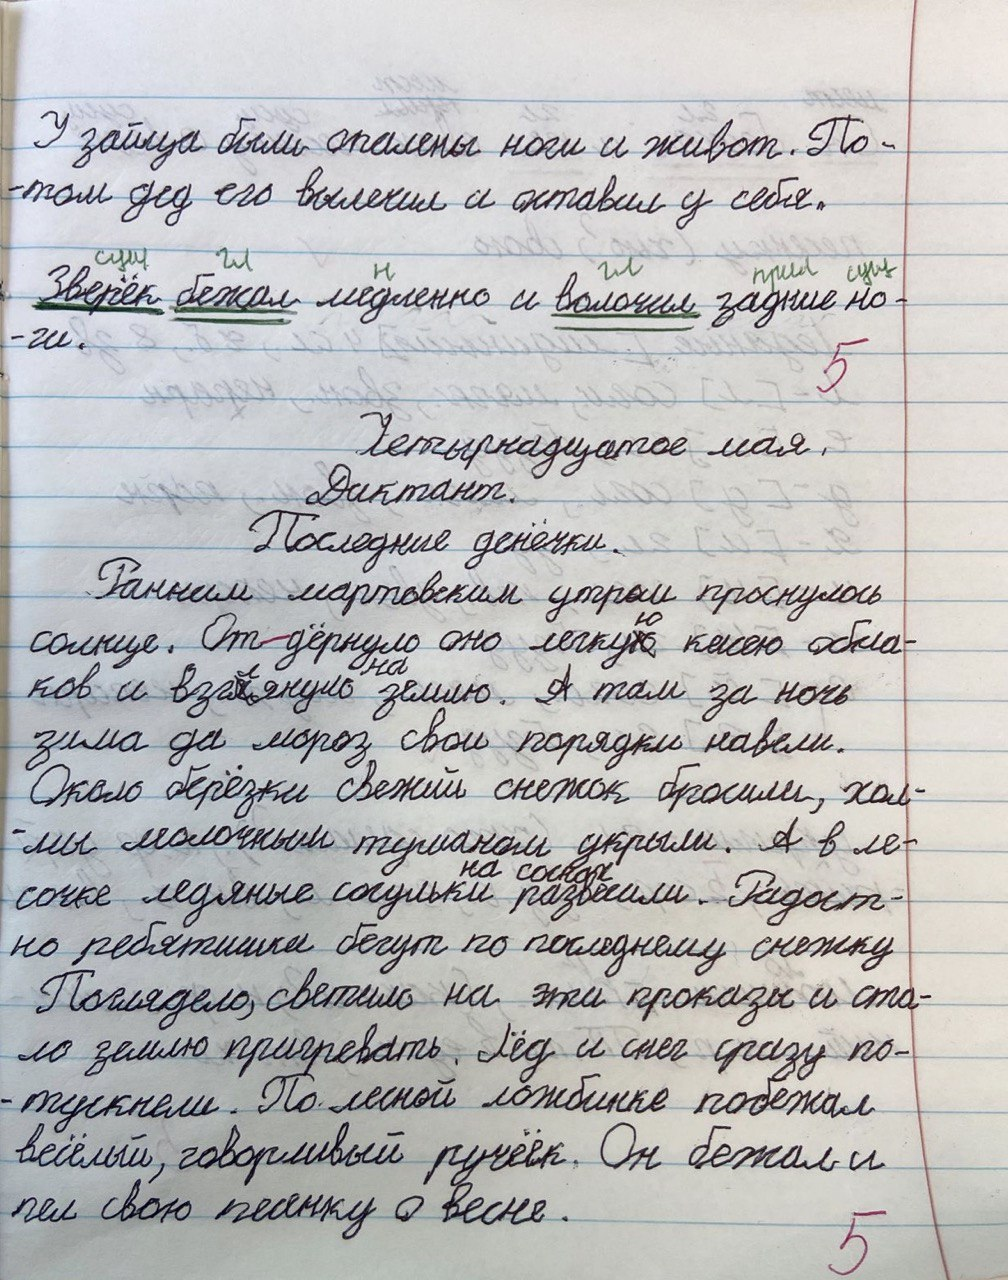 У зайца были опалены ноги и живот. По-
-том дед его вылечил и оставил у себя.
сущ гл н гл прил сущ
Зверёк бежал медленно и волочил задние но-
-ги.
5
Четырнадцатое мая.
Диктант.
Последние денёчки.
Ранним мартовским утром проснулось
солнце. От-дёрнуло оно легкую кисею обла-
ков и взглянуло на землю. А там за ночь
зима да мороз свои порядки навели.
Около берёзки свежий снежок бросили, хол-
-мы молочным туманом укрыли. А в ле-
сочке ледяные сосульки на соснах развесили. Радост-
но ребятишки бегут по последнему снежку
Поглядело, светило на эти проказы и ста-
ло землю пригревать. Лёд и снег сразу по-
-тускнели. По лесной ложбинке побежал
весёлый, говорливый ручеёк. Он бежал и
пел свою песенку о весне.
5